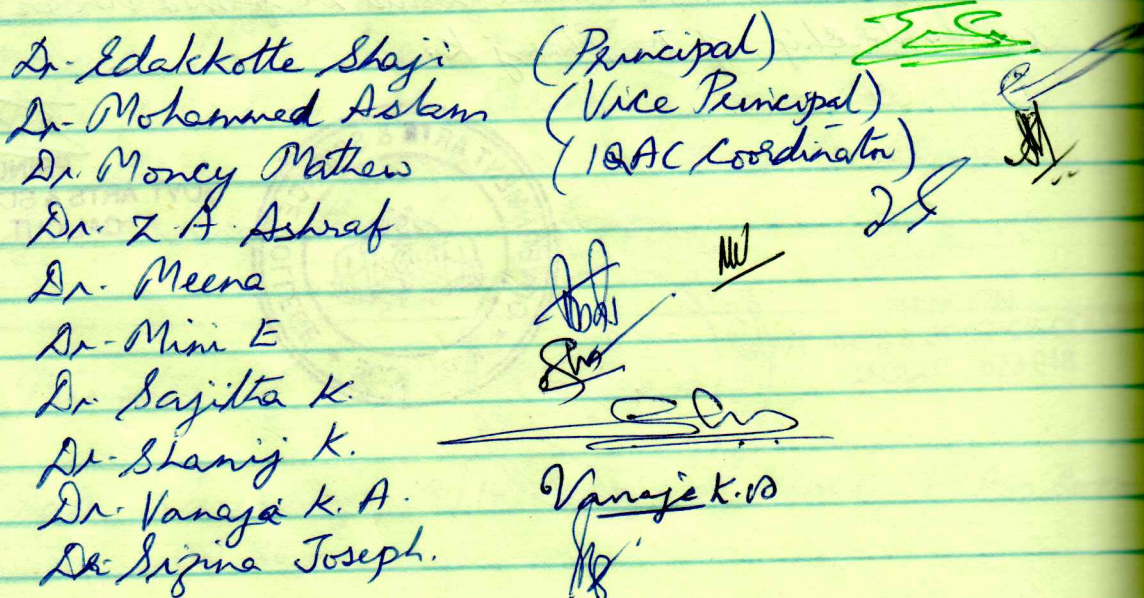 Dr. Edakkotte Shaji (Principal)
Dr. Mohammed Aslam (Vice Principal)
Dr. Moncy Mathew (IQAC Coordinator)
Dr. Z. A. Ashraf
Dr. Meena
Dr. Mini E
Dr. Sajitha K.
Dr. Shanij K.
Dr. Vanaja K. A. Vanaja K.A
Dr. Sizina Joseph.